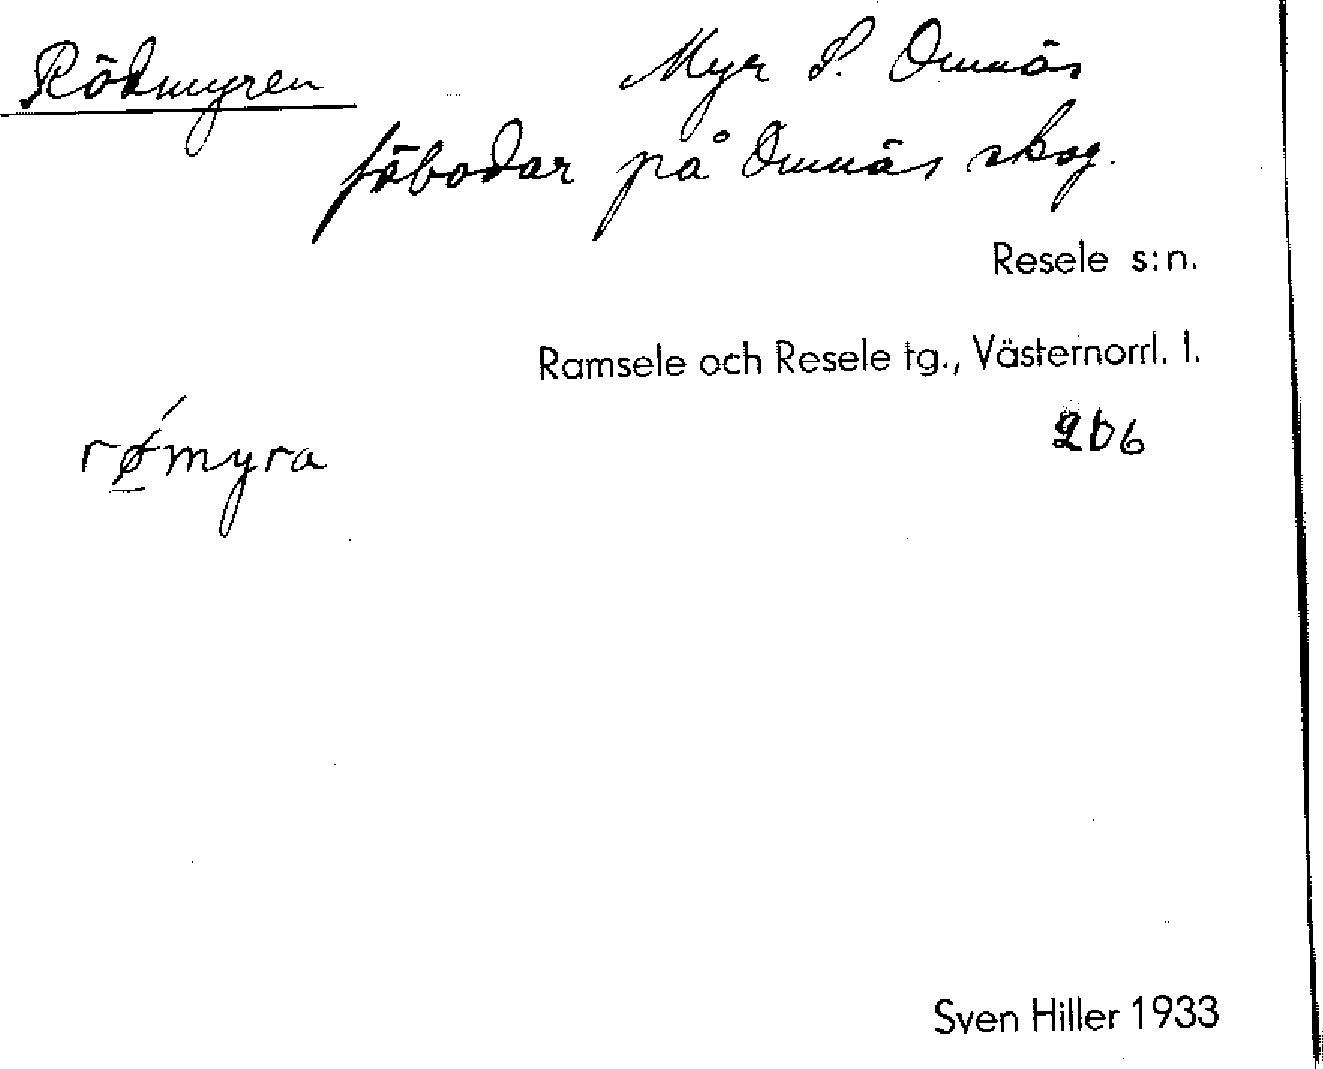 Rödmyren Myr S. Omnäs
fäbodar på Omnäs skog.
Resele s:n.
Ramsele och Resele tg., Västernorrl. l.
rǿmyra
Sven Hiller 1933